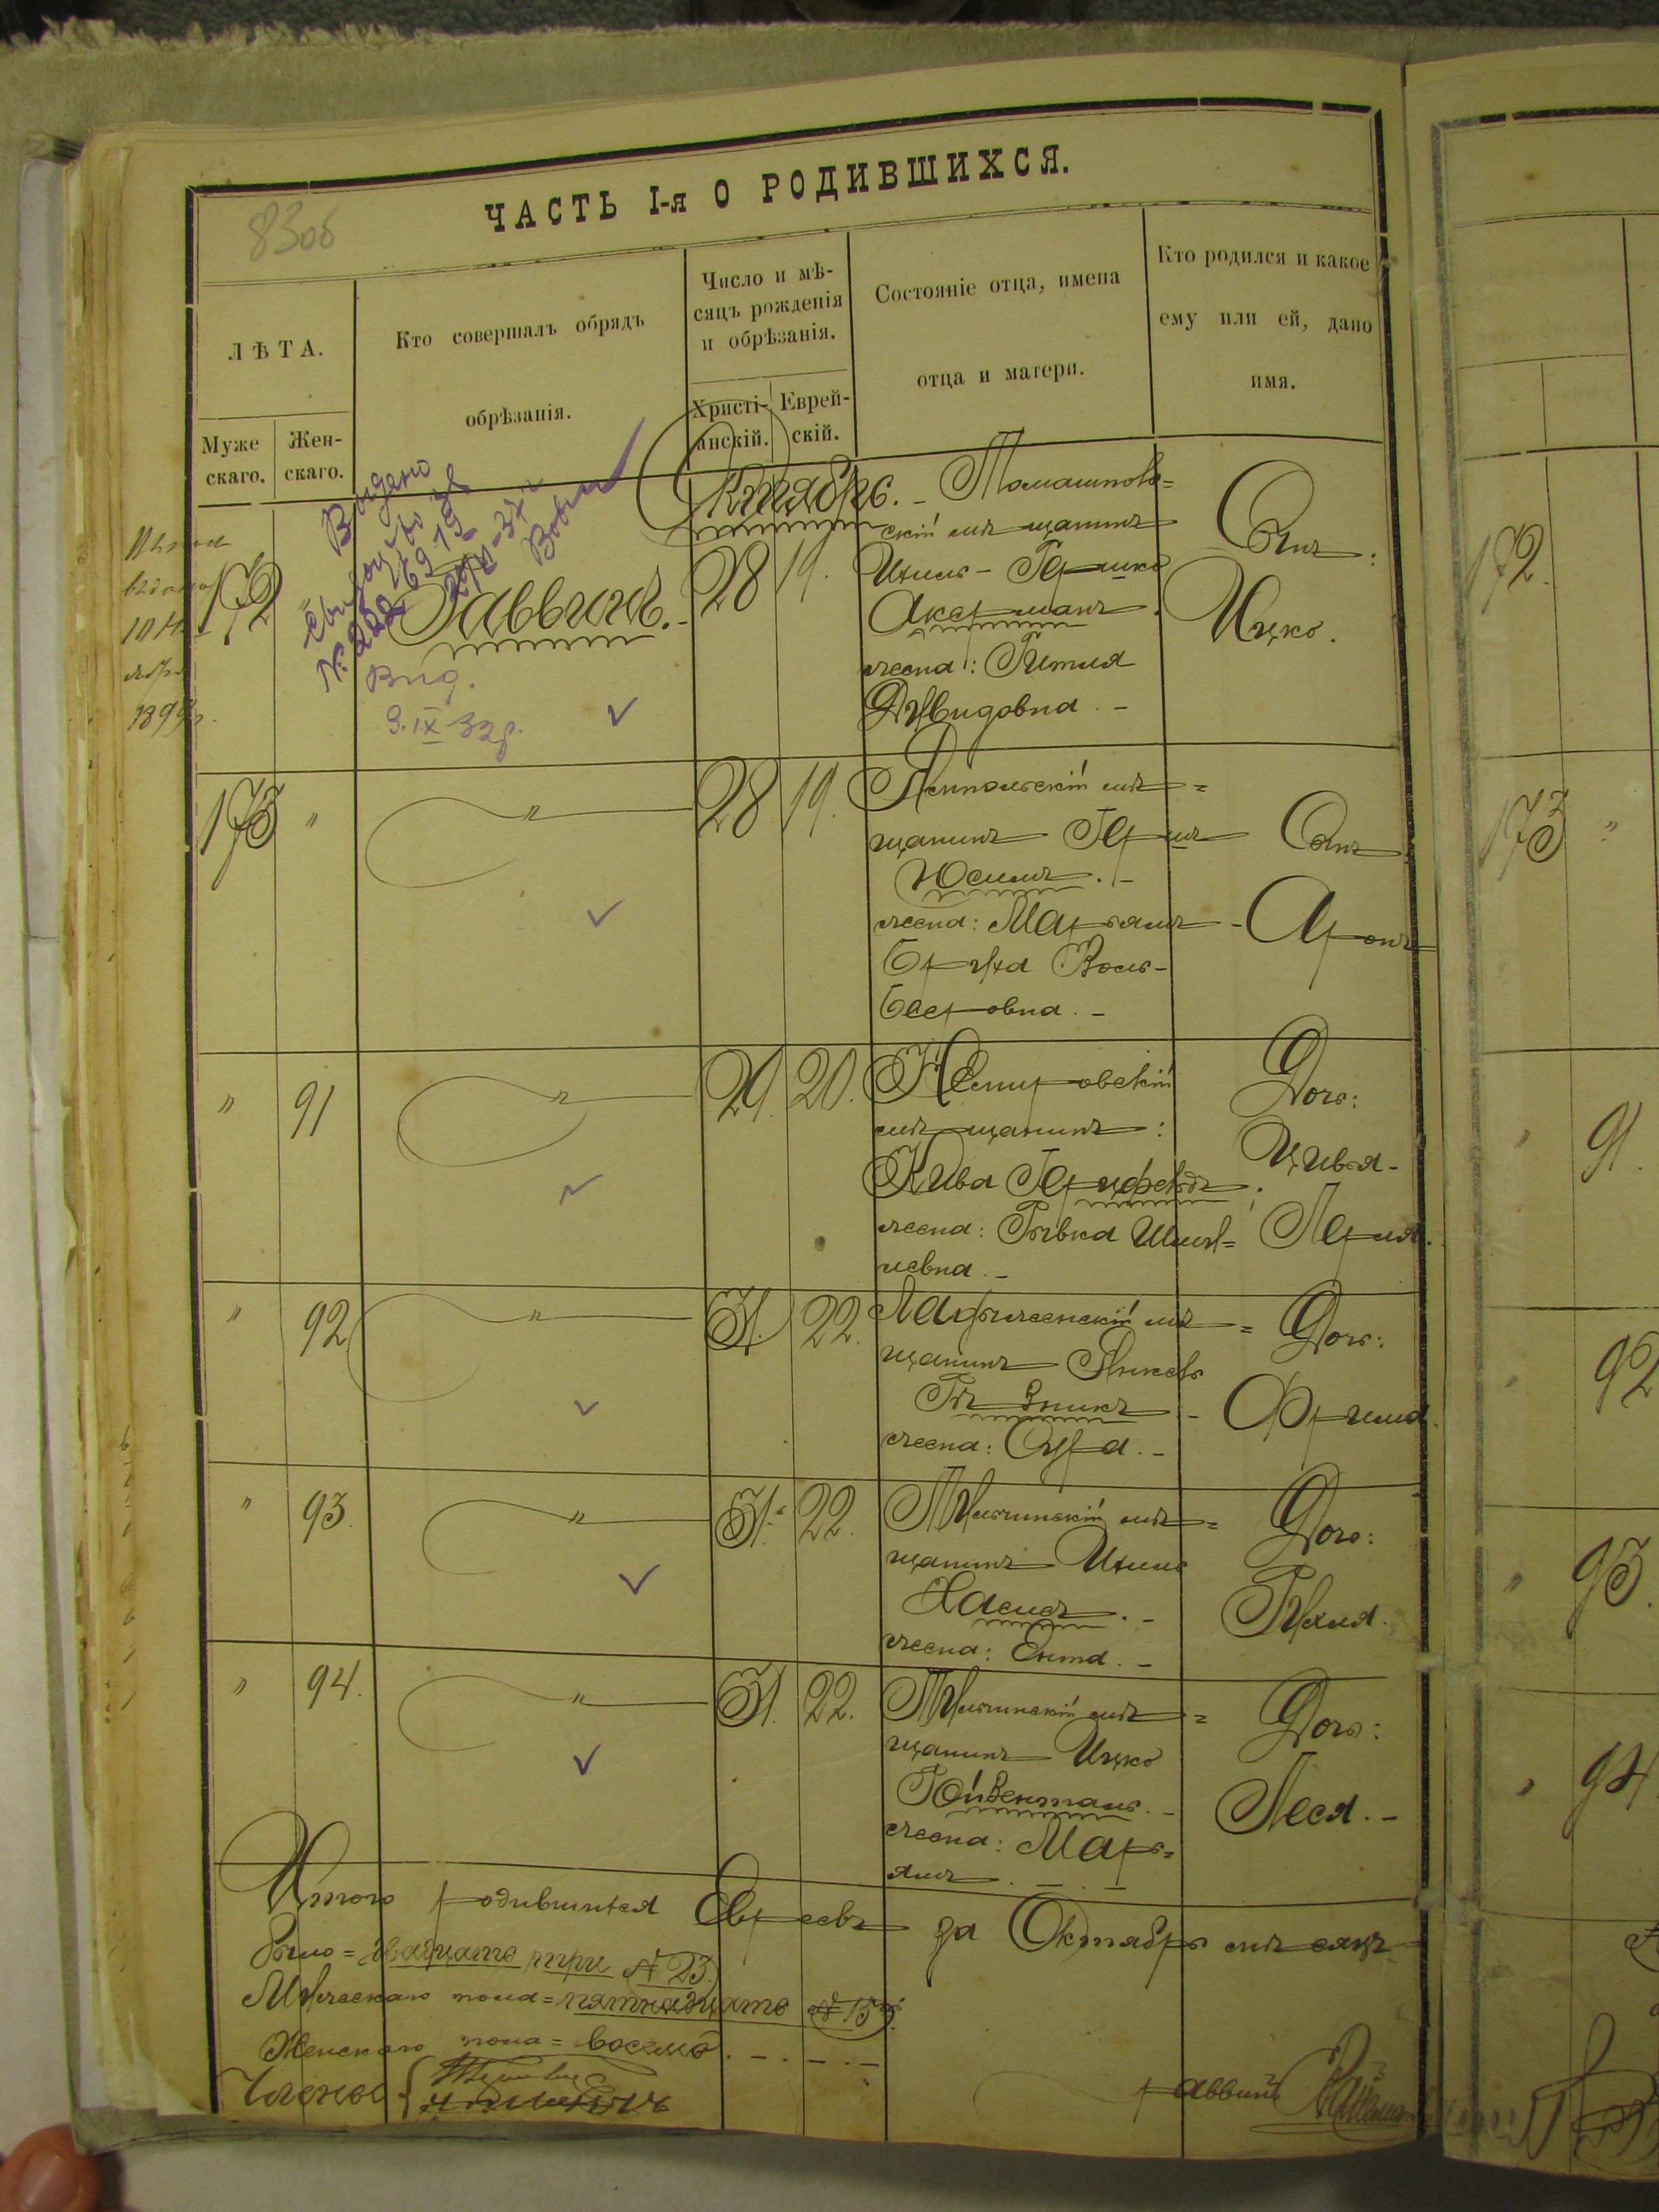 83об
ЧАСТЬ I-я О РОДИВШИХСЯ.
ЛѢТА.
Муже
скаго.
Жен-
скаго.
Кто совершалъ обрядъ
обрѣзанія.
Число и мѣ-
сяцъ рожденія
и обрѣзанія.
Христі-
анскій.
Еврей-
скій.
Состояніе отца, имена
отца и матери.
Кто родился и какое
ему или ей, дано
имя.
Октябрь.
172
Выдано
Раввинъ.
Выд.
9.IX 32р.
28
19.
Томашполь=
скій мѣщанинъ
Ихиль - Гершко
Акерманъ.
жена: Гитля
Дувидовна. -
Сынъ:
Ицко.
173
"
"
28
19.
Ямпольскій мѣ=
щанинъ Герш
Юсимъ. -
жена: Марьямъ -
Бруха Воль-
беровна. -
Сынъ
Аронъ
"
91
"
29.
20.
Немировскій
мѣщанинъ:
Кива Герцфельдъ;
жена: Рывка Шму=
левна. -
Дочь:
Цивья-
Перля.
"
92
"
31.
22.
Ладыженскій мѣ=
щанинъ Янкель
Рѣзникъ -
жена: Сура. -
Дочь:
Фрима.
"
93.
"
31.
22.
Тульчинскій мѣ=
щанинъ Ихиль
Хаисъ. -
жена: Ента. -
Дочь:
Рухля.
"
94.
"
31.
22.
Тульчинскій мѣ=
щанинъ Ицко
Гойзенталь. -
жена: Марь=
ямъ. - . -
Дочь:
Леся. -
Итого родившихся Евреевъ за Октябрь мѣсяцъ
было = двадцать три № 23.
Мужескаго пола = пятнадцать № 15
Женскаго пола = восемь. - . - . -
Члены
раввинъ
172.
173
"
"
91.
"
92
"
93.
"
94